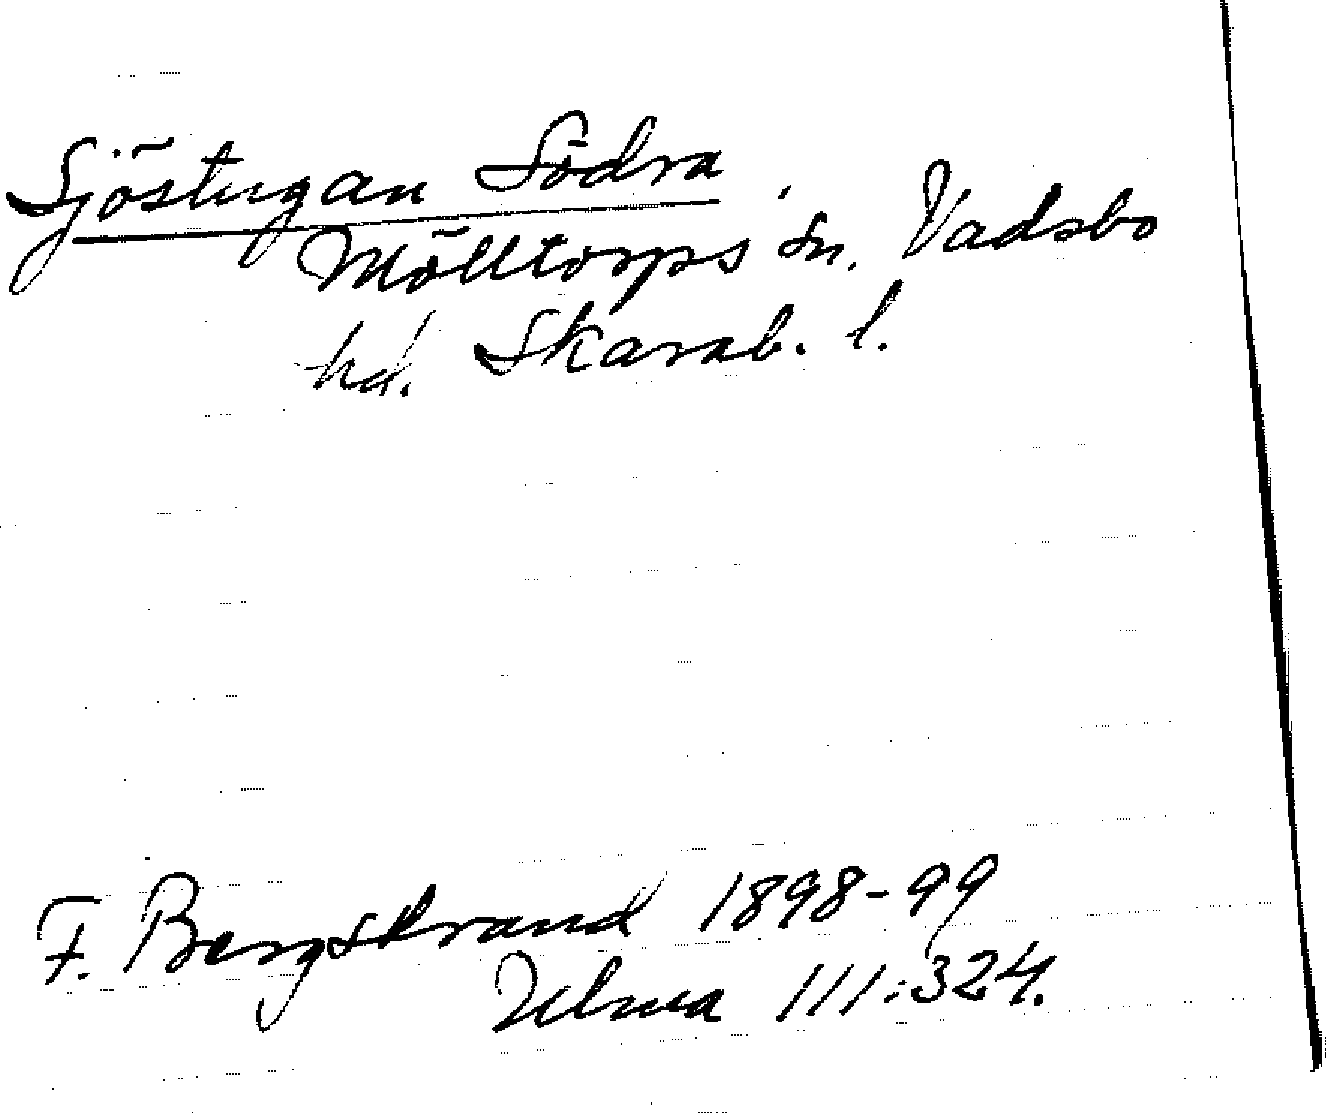 Sjöstugan Södra
Mölltorps sn. Vadsbo
hd. Skarab. l.
F. Bergstrand 1898-99
Ulma 111:324.